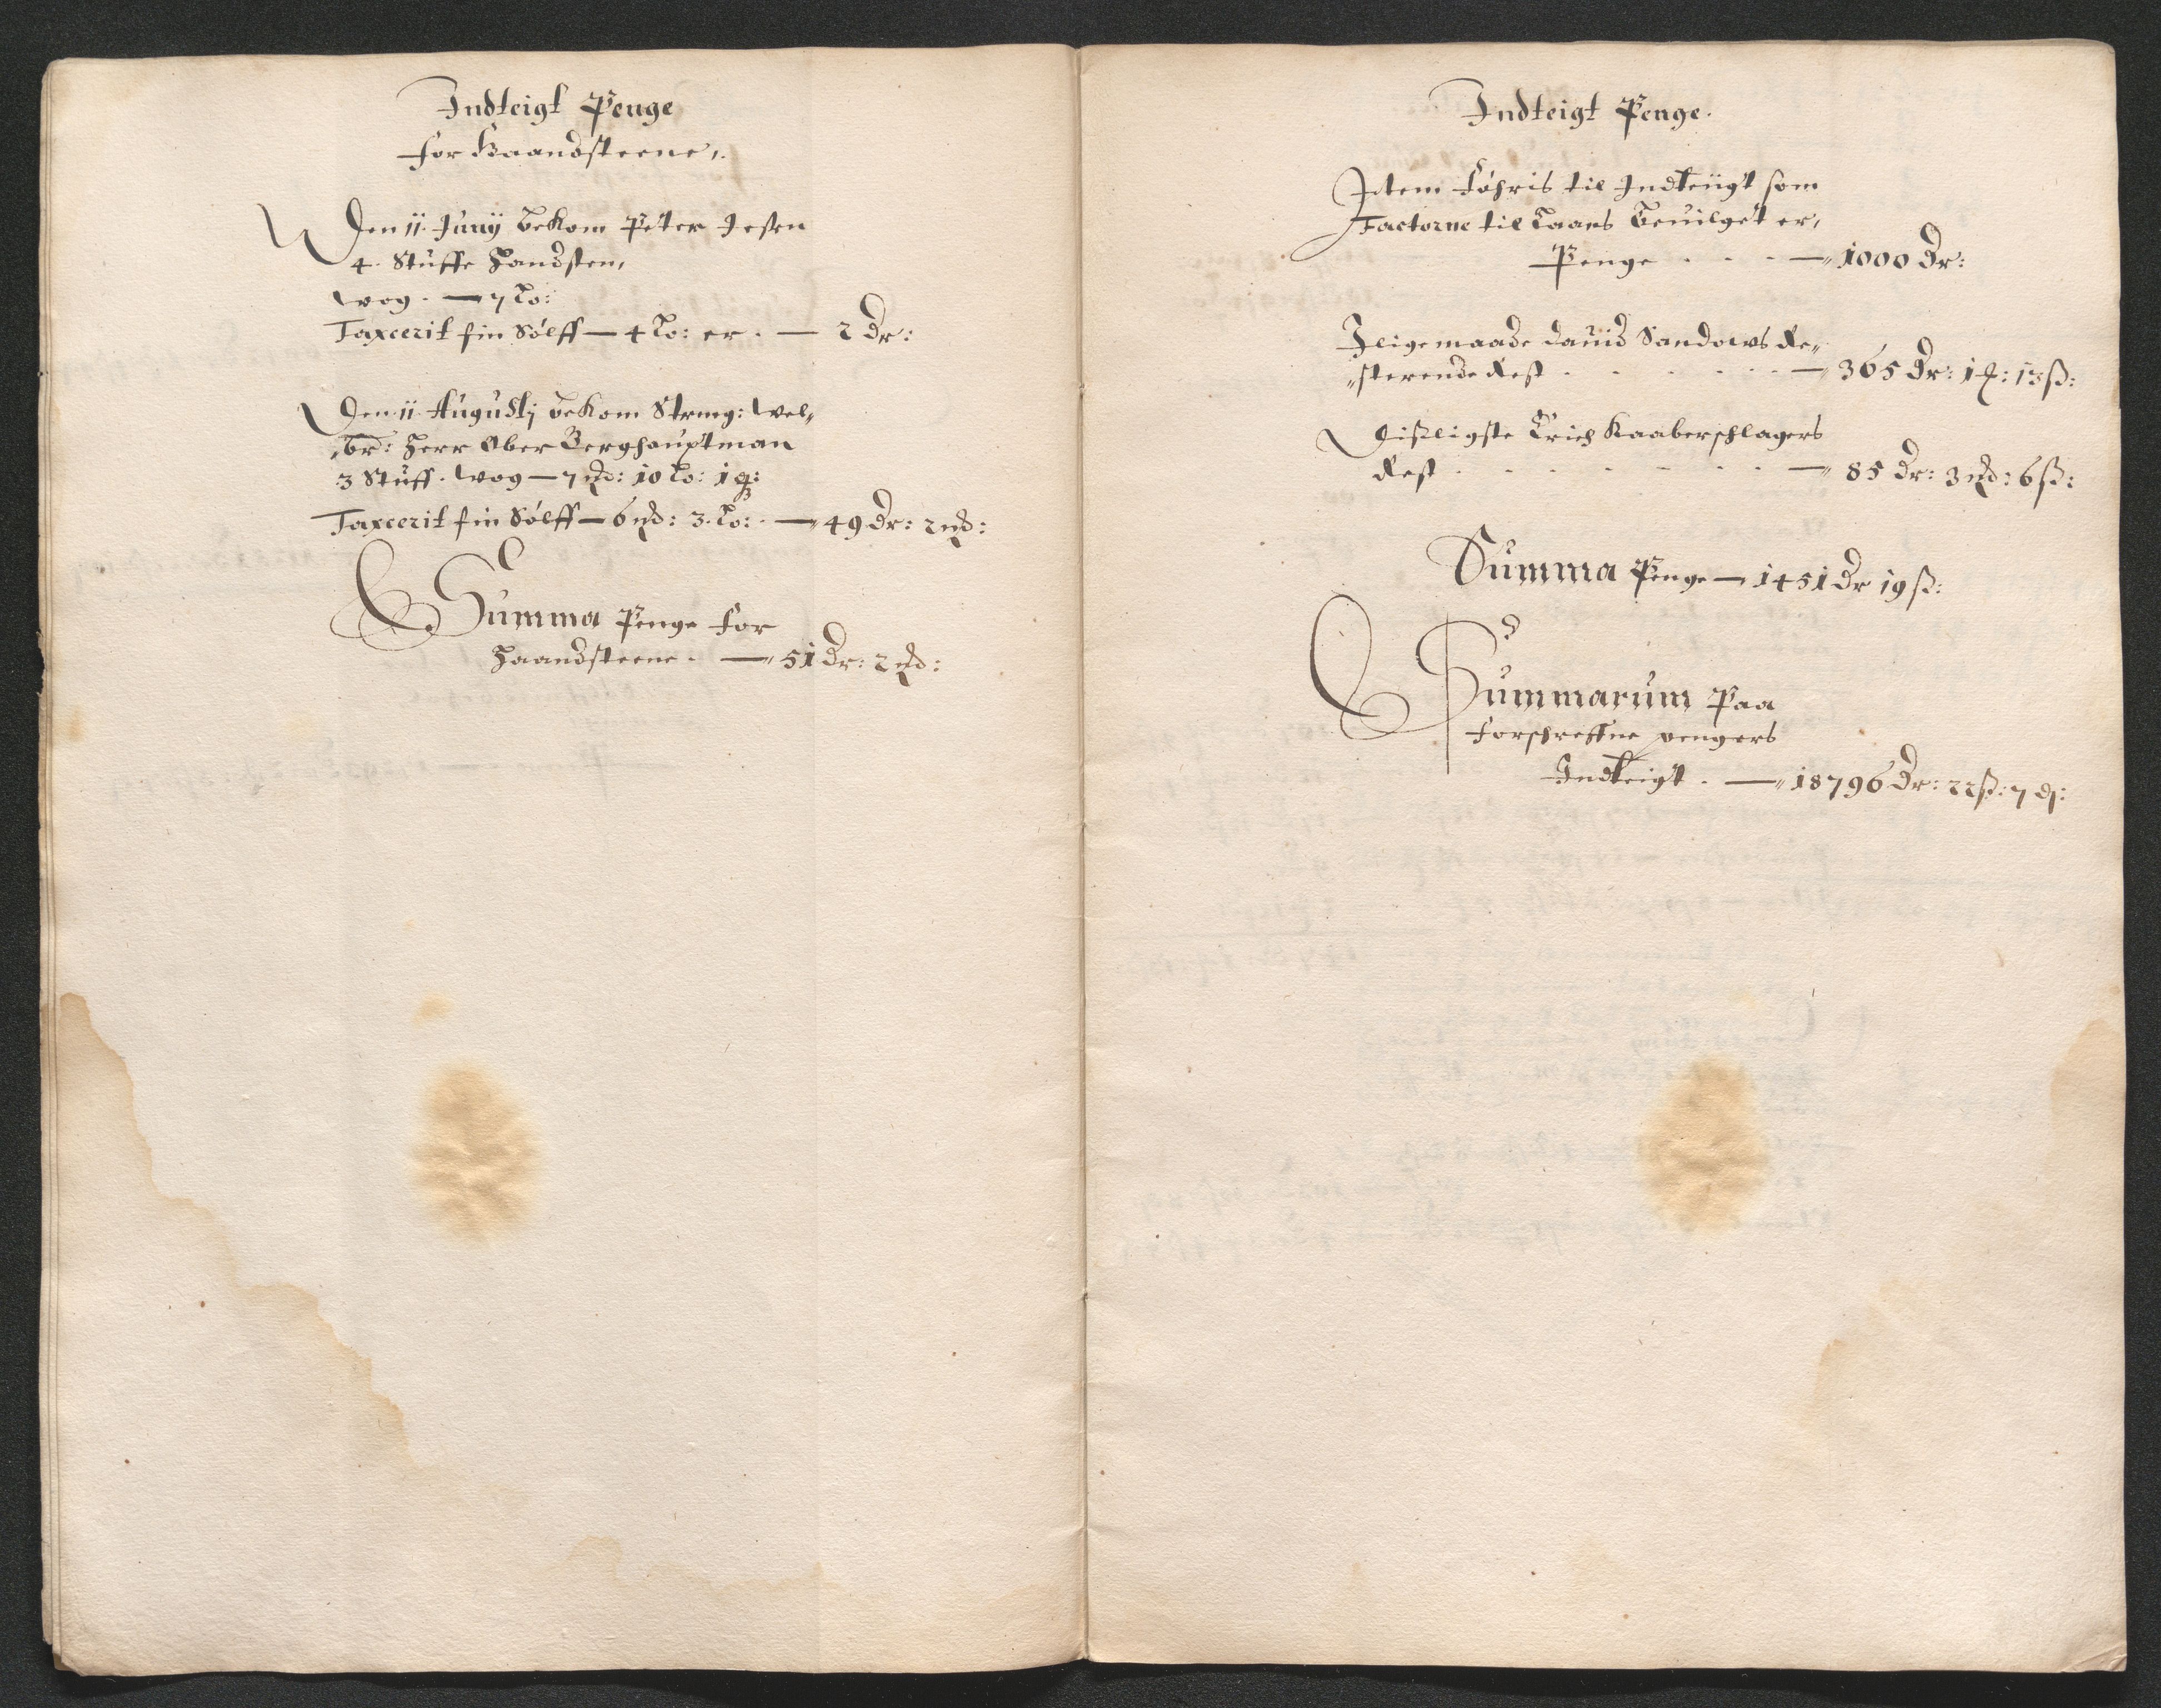 Indteigt Penge
for Haandsteene,
Den 11. Junij bekom Peter Jesen
4. Stuffe Handsten,
wog. — 7 Lo:
Taxcerit fin Sölff — 4 Lo: er. — 2 Dr:
Den 11. Augustj bekom Streng: Wel„
„br: Herr Ober Berghauptman
3 Stuff. wog — 7 mk: 10 Lo: 1 q:
Taxcerit fin Sölff — 6 mk: 3. Lo: — 49 Dr: 2 mk:
Summa Penge for
Haandsteene. — 51 Dr: 2 mk:
Indteigt Penge.
Item föhris til Indteigt som
Factorne til Laans beuilget er,
Penge . . . — 1000 Dr:
I lige maade Dauid Sandows Re„
„sterende Rest . . . . . . — 365 Dr: 1 : 13 ß:
Dißligste Erich Kaaberschlagers
Rest . . . . . . . — 85 Dr: 3 mk: 6 ß:
Summa Penge — 1451 Dr 19 ß:
Summarum Paa
forschreffne pengers
Indteigt . — 18796 Dr: 22 ß: 7 d: